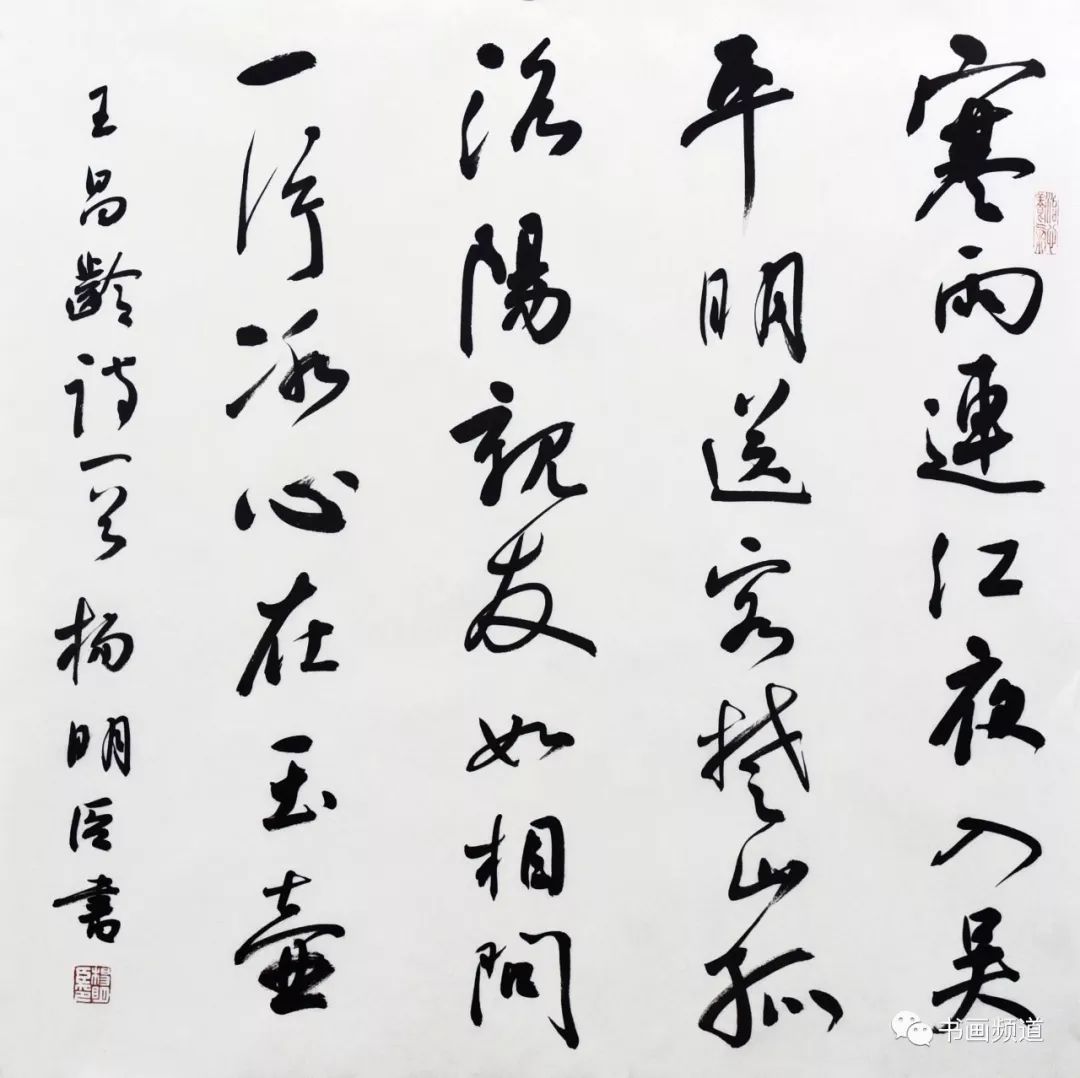 寒雨連江夜入吴
平明送客楚山孤
洛陽親友如相問
一片冰心在玉壺
王昌齡詩一首 楊明臣書
书画频道